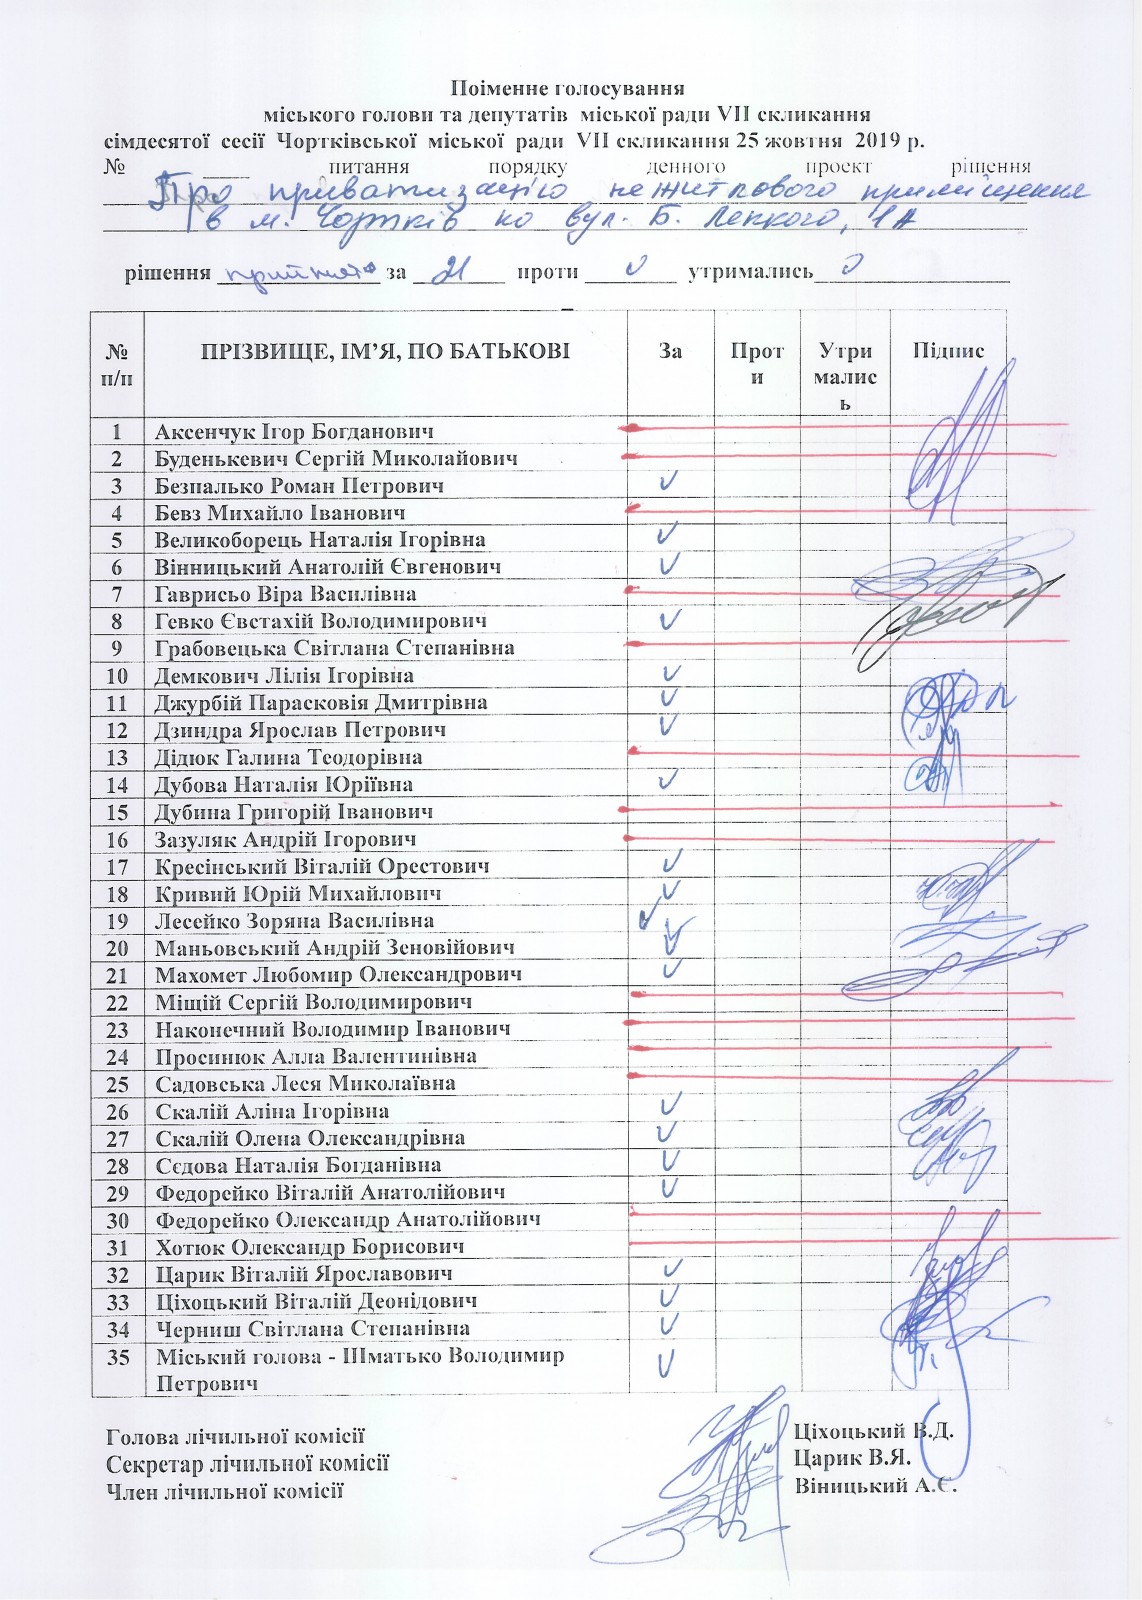 Поіменне голосування
міського голови та депутатів міської ради VII скликання
сімдесятої сесії Чортківської міської ради VII скликання 25 жовтня 2019 р.
№ ____ питання порядку денного проект рішення
Про приватизацію нежитлового приміщення
в м. Чортків по вул. Б. Лепкого, 1А
рішення прийнято за 21 проти 0 утримались 0
№ п/п ПРІЗВИЩЕ, ІМ’Я, ПО БАТЬКОВІ За Проти Утримались Підпис
1 Аксенчук Ігор Богданович
2 Буденькевич Сергій Миколайович
3 Безпалько Роман Петрович V
4 Бевз Михайло Іванович
5 Великоборець Наталія Ігорівна V
6 Вінницький Анатолій Євгенович V
7 Гаврисьо Віра Василівна
8 Гевко Євстахій Володимирович V
9 Грабовецька Світлана Степанівна
10 Демкович Лілія Ігорівна V
11 Джурбій Парасковія Дмитрівна V
12 Дзиндра Ярослав Петрович V
13 Дідюк Галина Теодорівна
14 Дубова Наталія Юріївна V
15 Дубина Григорій Іванович
16 Зазуляк Андрій Ігорович
17 Кресінський Віталій Орестович V
18 Кривий Юрій Михайлович V
19 Лесейко Зоряна Василівна V
20 Маньовський Андрій Зеновійович V
21 Махомет Любомир Олександрович V
22 Міщій Сергій Володимирович
23 Наконечний Володимир Іванович
24 Просинюк Алла Валентинівна
25 Садовська Леся Миколаївна
26 Скалій Аліна Ігорівна V
27 Скалій Олена Олександрівна V
28 Сєдова Наталія Богданівна V
29 Федорейко Віталій Анатолійович V
30 Федорейко Олександр Анатолійович
31 Хотюк Олександр Борисович
32 Царик Віталій Ярославович V
33 Ціхоцький Віталій Деонідович V
34 Черниш Світлана Степанівна V
35 Міський голова - Шматько Володимир V
Петрович
Голова лічильної комісії Ціхоцький В.Д.
Секретар лічильної комісії Царик В.Я.
Член лічильної комісії Віницький А.Є.